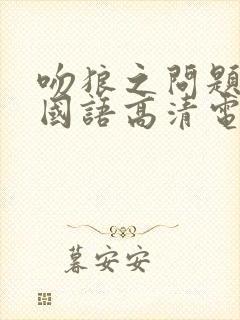 吻狼之問題
國語高清電
暮安安